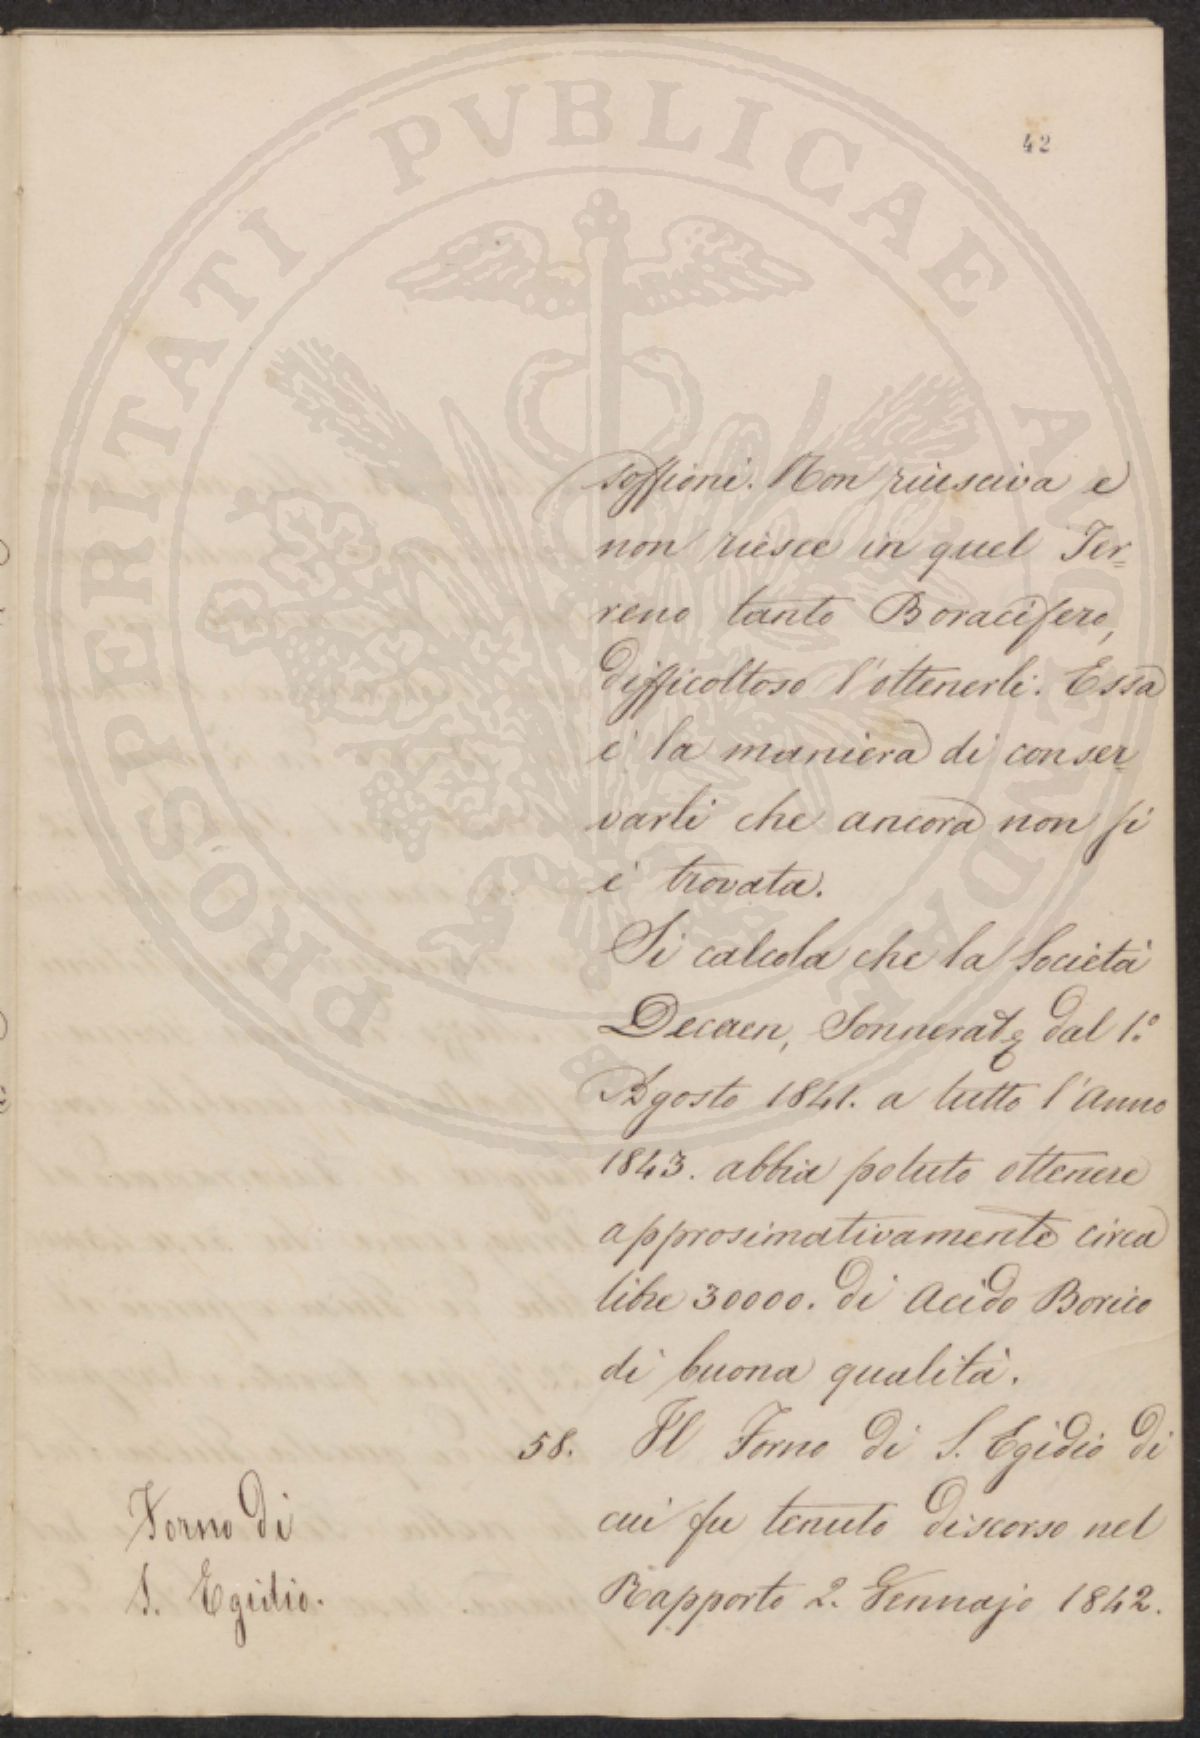 42
soffioni. Non riusciva e
non riesce in quel Ter=
reno tanto Boracifero,
difficoltoso l'ottenerli. Essa
è la maniera di conser=
varli che ancora non si
è trovata.
Si calcola che la Società
Decaen, Sonnerat, dal 1.°
Agosto 1841. a tutto l'anno
1843. abbia potuto ottenere
approsimativamente circa
libre 30000. di Acido Borico
di buona qualità.
58. Il Forno di S. Egidio di
cui fu tenuto discorso nel
Rapporto 2. Gennajo 1842.
Forno di
S. Egidio.
PROSPERITATI PVBLICAE AVGENDAE